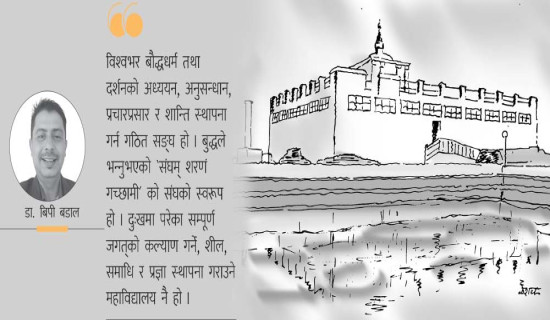 विश्वभर बौद्धधर्म तथा
दर्शनको अध्ययन, अनुसन्धान,
प्रचारप्रसार र शान्ति स्थापना
गर्न गठित सङ्घ हो । बुद्धले
भन्नुभएको ‘संघम् शरणं
गच्छामी’ को संघको स्वरूप
हो । दुःखमा परेका सम्पूर्ण
जगत्को कल्याण गर्ने, शील,
समाधि र प्रज्ञा स्थापना गराउने
महाविद्यालय नै हो ।
डा. बिपी बडाल